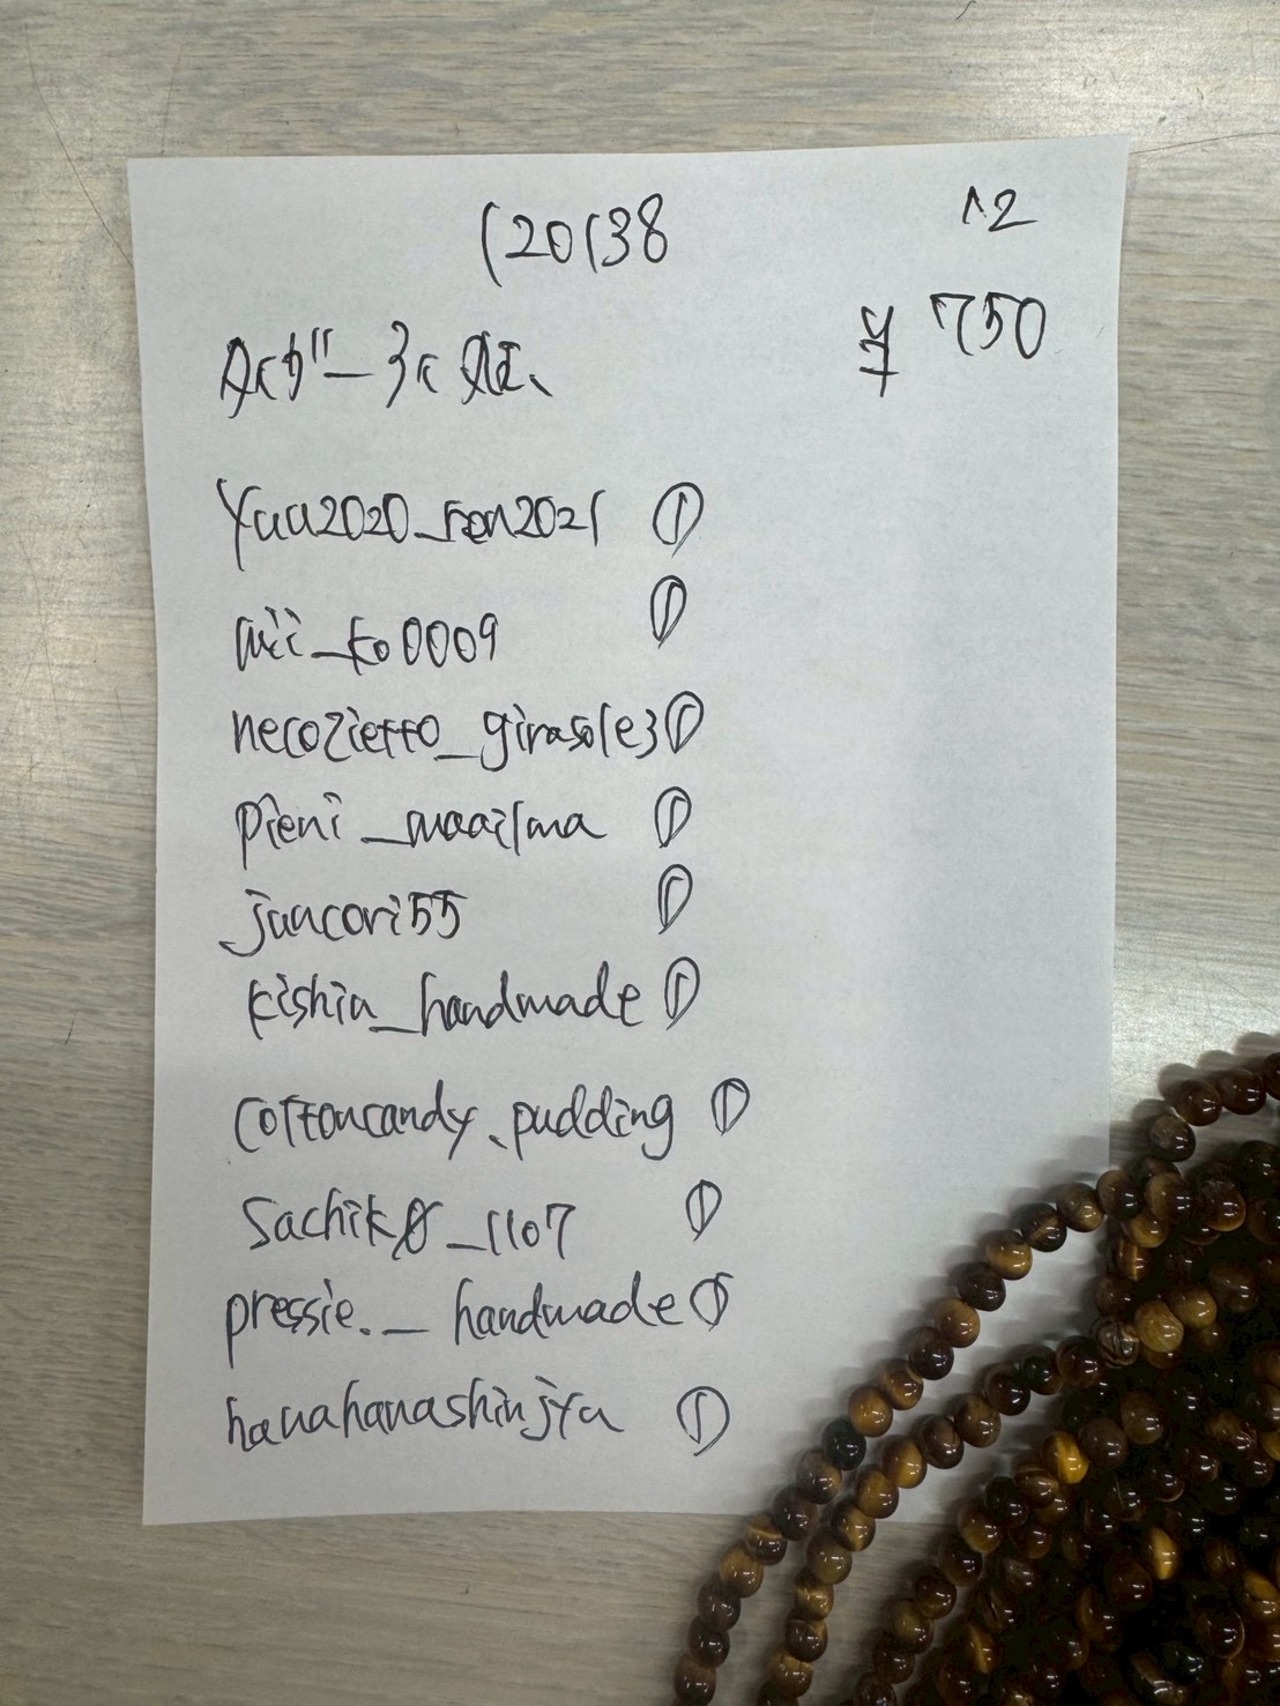 120138
^2
¥ 750
yaa2020_ren2021 ①
mii_ko0009 ①
necozietto_girasole3 ①
pieni_maailma ①
juncori55 ①
kishin_handmade ①
cottoncandy.pudding ①
sachik0_1107 ①
pressie._handmade ①
hanahanashinjya ①